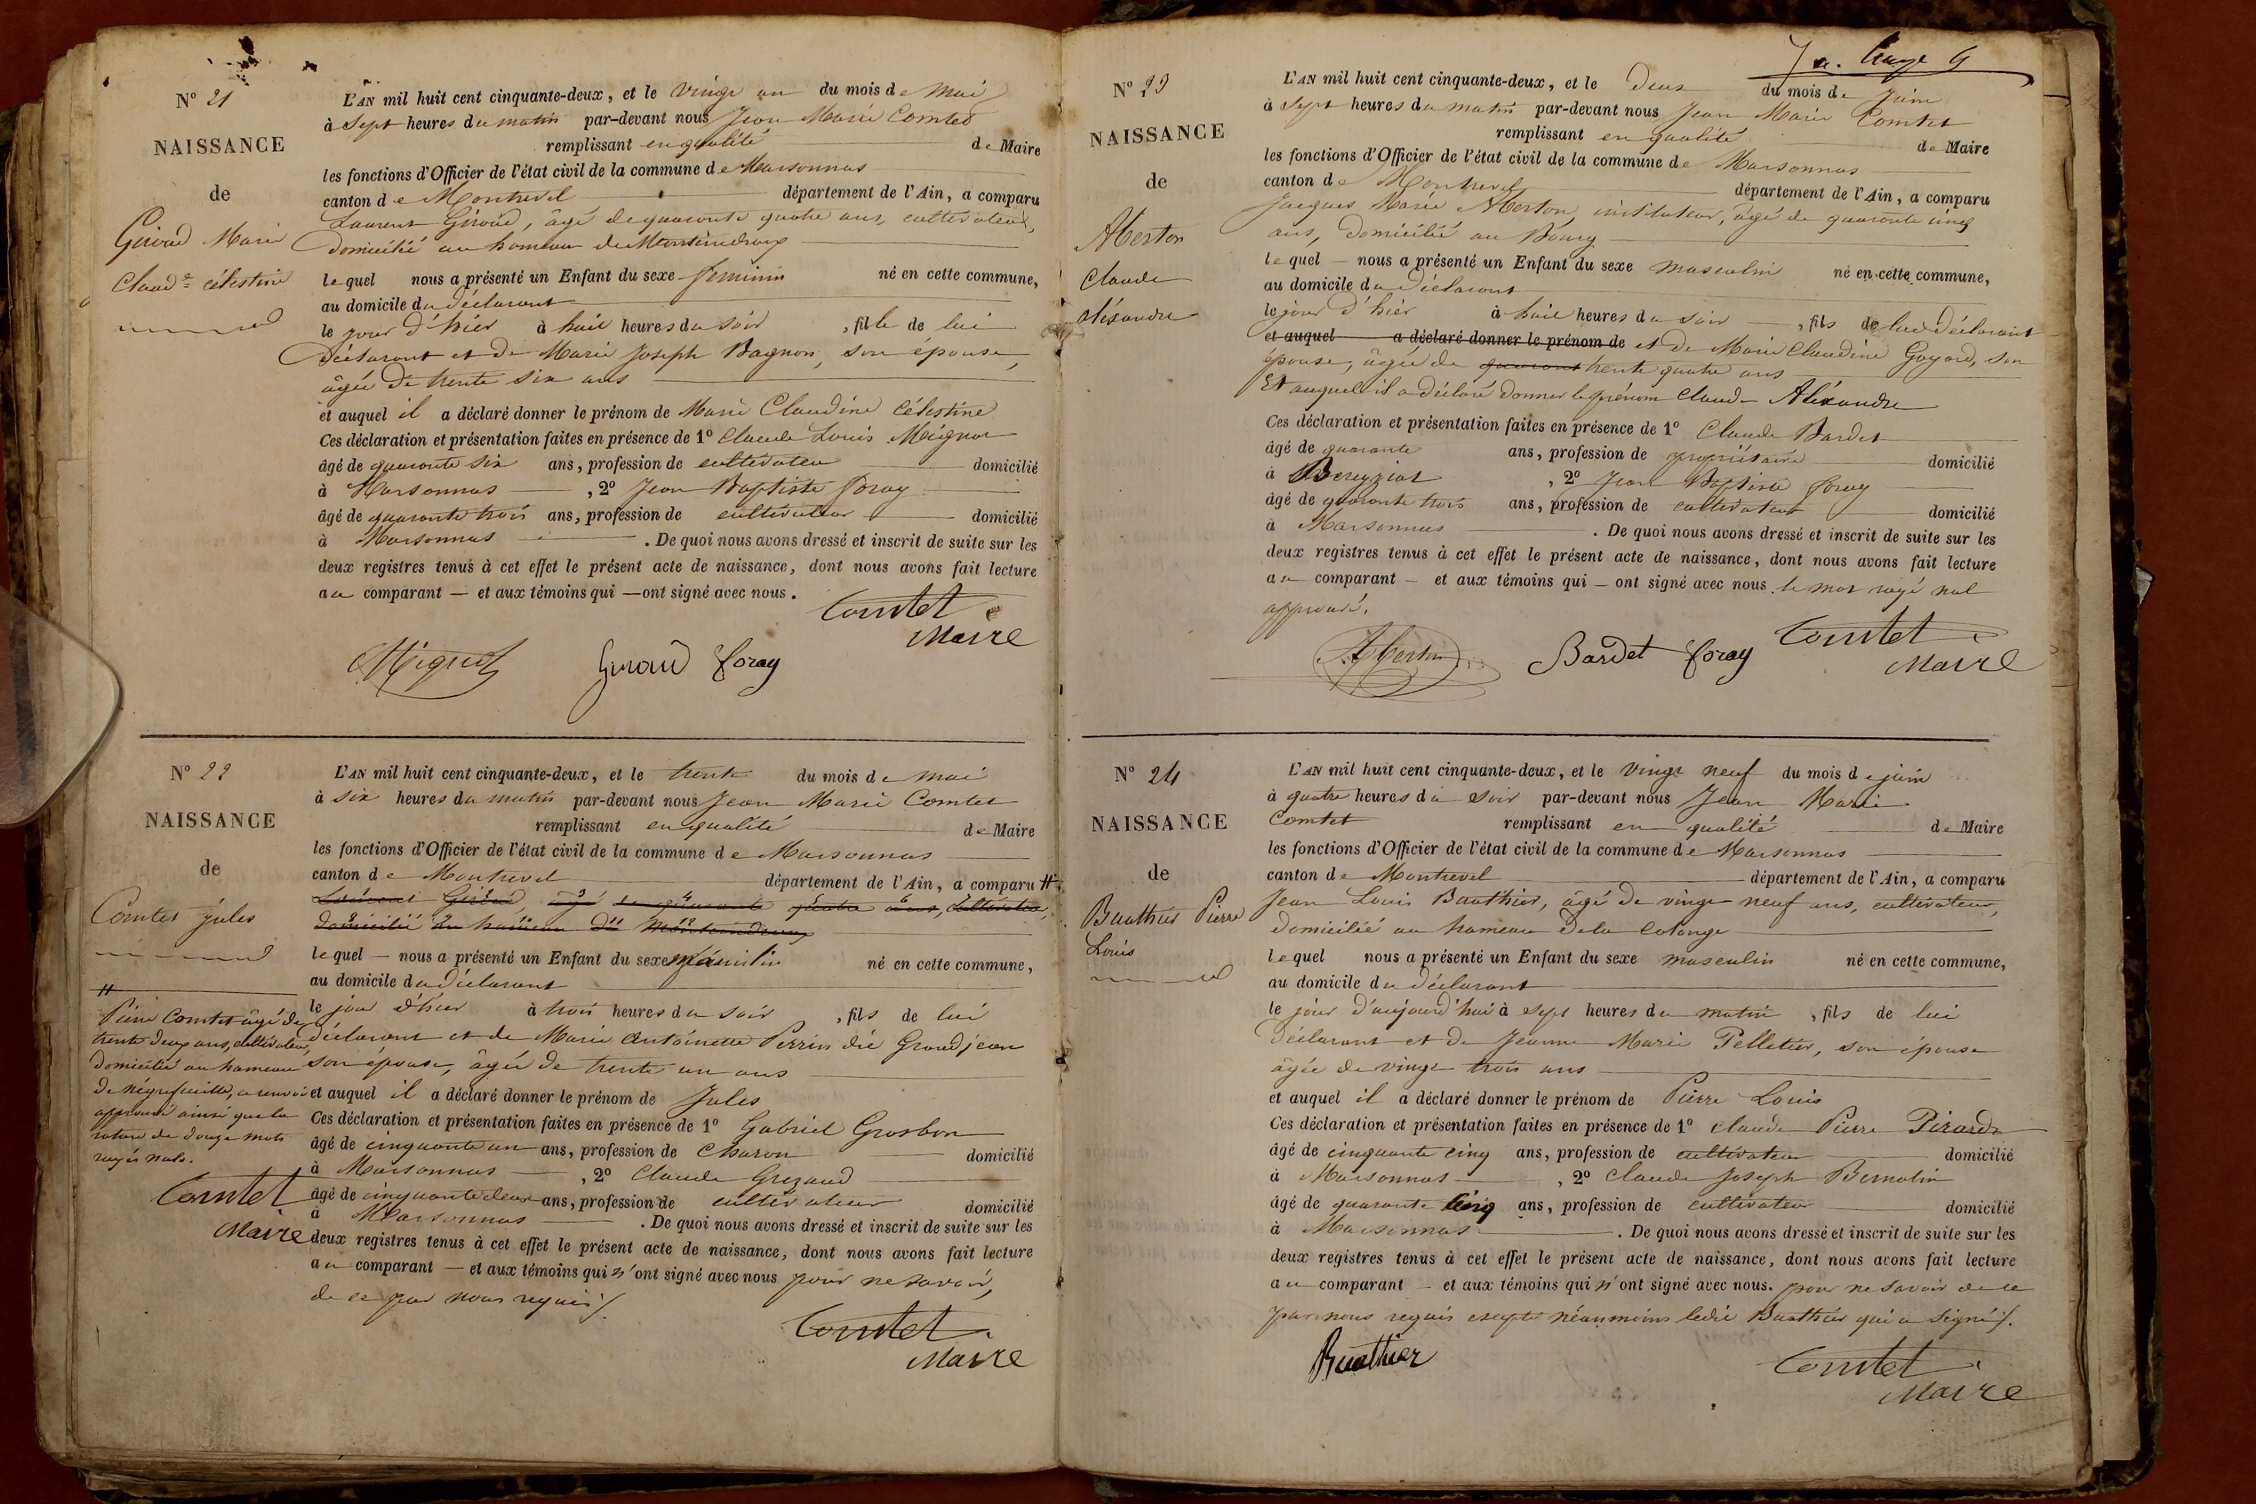 N° 21
NAISSANCE
de
Giroud Marie
Claud.ne célestine
L'AN mil huit cent cinquante-deux, et le vingt un du mois de Mai
à Sept heures du matin par-devant nous Jean Marie Comtet
remplissant en qualité de Maire
les fonctions d'Officier de l'état civil de la commune de Marsonnas
canton de Montrevel département de l'Ain, a comparu
Laurent Giroud, âgé de quarante quatre ans, cultivateur,
domicilié au hameau de
lequel nous a présenté un Enfant du sexe feminin né en cette commune,
au domicile du déclarant
le jour d'hier à huit heures du soir, fille de lui
déclarant et de Marie Joseph Bagnon, son épouse,
âgée de trente six ans
et auquel il a déclaré donner le prénom de Marie Claudine Célestine
Ces déclaration et présentation faites en présence de 1° Claude Louis Mignot
âgé de quarante six ans, profession de cultivateur domicilié
à Marsonnas, 2° Jean Baptiste foray
âgé de quarante trois ans, profession de cultivateur domicilié
à Marsonnas. De quoi nous avons dressé et inscrit de suite sur les
deux registres tenus à cet effet le présent acte de naissance, dont nous avons fait lecture
au comparant et aux témoins qui ont signé avec nous.
Comtet
Maire
Mignot Giroud foray
N° 22
NAISSANCE
de
Comtet Jules
L'AN mil huit cent cinquante-deux, et le trente du mois de mai
à six heures du matin par-devant nous Jean Marie Comtet
remplissant en qualité de Maire
les fonctions d'Officier de l'état civil de la commune de Marsonnas
canton de Montrevel département de l'Ain, a comparu #
Laurent Giroud, âgé de quarante quatre ans, cultivateur,
domicilié au hameau de
lequel nous a présenté un Enfant du sexe masculin né en cette commune,
au domicile du déclarant
le jour d'hier à trois heures du soir, fils de lui
déclarant et de Marie Antoinette Perrin dit Grandjean
son épouse, âgée de trente un ans
et auquel il a déclaré donner le prénom de Jules
Ces déclaration et présentation faites en présence de 1° Gabriel Grosbon
âgé de cinquante un ans, profession de Charon domicilié
à Marsonnas, 2° Claude Grezaud
âgé de cinquante deux ans, profession de cultivateur domicilié
à Marsonnas. De quoi nous avons dressé et inscrit de suite sur les
deux registres tenus à cet effet le présent acte de naissance, dont nous avons fait lecture
au comparant et aux témoins qui n'ont signé avec nous pour ne savoir,
de ce par nous requis /.
Comtet
Maire
#
Pierre Comtet âgé de
trente deux ans, cultivateur,
domicilié au hameau
de négrefeuille, a renvoi
approuvé ainsi que la
rature de douze mots
rayés nuls.
Comtet
Maire
N° 23
NAISSANCE
de
Alerton
Claude
aléxandre
L'AN mil huit cent cinquante-deux, et le deux du mois de juin
à sept heures du matin par-devant nous Jean Marie Comtet
remplissant en qualité de Maire
les fonctions d'Officier de l'état civil de la commune de Marsonnas
canton de Montrevel département de l'Ain, a comparu
Jacques Marie Alerton, instituteur, âgé de quarante cinq
ans, domicilié au Bourg
lequel nous a présenté un Enfant du sexe masculin né en cette commune,
au domicile du déclarant
le jour d'hier à huit heures du soir, fils de lui déclarant
et auquel a déclaré donner le prénom de et de Marie Claudine Goyard, son
épouse, âgée de quarant trente quatre ans
Et auquel il a déclaré donner le prénom Claude Aléxandre
Ces déclaration et présentation faites en présence de 1° Claude Bardet
âgé de quarante ans, profession de propriétaire domicilié
à Bereyziat, 2° Jean Baptiste foray
âgé de quarante trois ans, profession de cultivateur domicilié
à Marsonnas. De quoi nous avons dressé et inscrit de suite sur les
deux registres tenus à cet effet le présent acte de naissance, dont nous avons fait lecture
au comparant et aux témoins qui ont signé avec nous. le mot rayé nul
approuvé.
Alerton Bardet foray Comtet
Maire
N° 24
NAISSANCE
de
Buathier Pierre
Louis
L'AN mil huit cent cinquante-deux, et le vingt neuf du mois de juin
à quatre heures du soir par-devant nous Jean Marie
Comtet remplissant en qualité de Maire
les fonctions d'Officier de l'état civil de la commune de Marsonnas
canton de Montrevel département de l'Ain, a comparu
Jean Louis Buathier, âgé de vingt neuf ans, cultivateur,
domicilié au hameau de la Colonge
lequel nous a présenté un Enfant du sexe masculin né en cette commune,
au domicile du déclarant
le jour d'aujourd'hui à sept heures du matin, fils de lui
déclarant et de Jeanne Marie Pelletier, son épouse
âgée de vingt trois ans
et auquel il a déclaré donner le prénom de Pierre Louis
Ces déclaration et présentation faites en présence de 1° Claude Pierre Pirard
âgé de cinquante cinq ans, profession de cultivateur domicilié
à Marsonnas, 2° Claude Joseph Bernolin
âgé de quarante cinq ans, profession de cultivateur domicilié
à Marsonnas. De quoi nous avons dressé et inscrit de suite sur les
deux registres tenus à cet effet le présent acte de naissance, dont nous avons fait lecture
au comparant et aux témoins qui n'ont signé avec nous. pour ne savoir de ce
par nous requis excepté néanmoins ledit Buathier qui a signé /.
Buathier Comtet
Maire